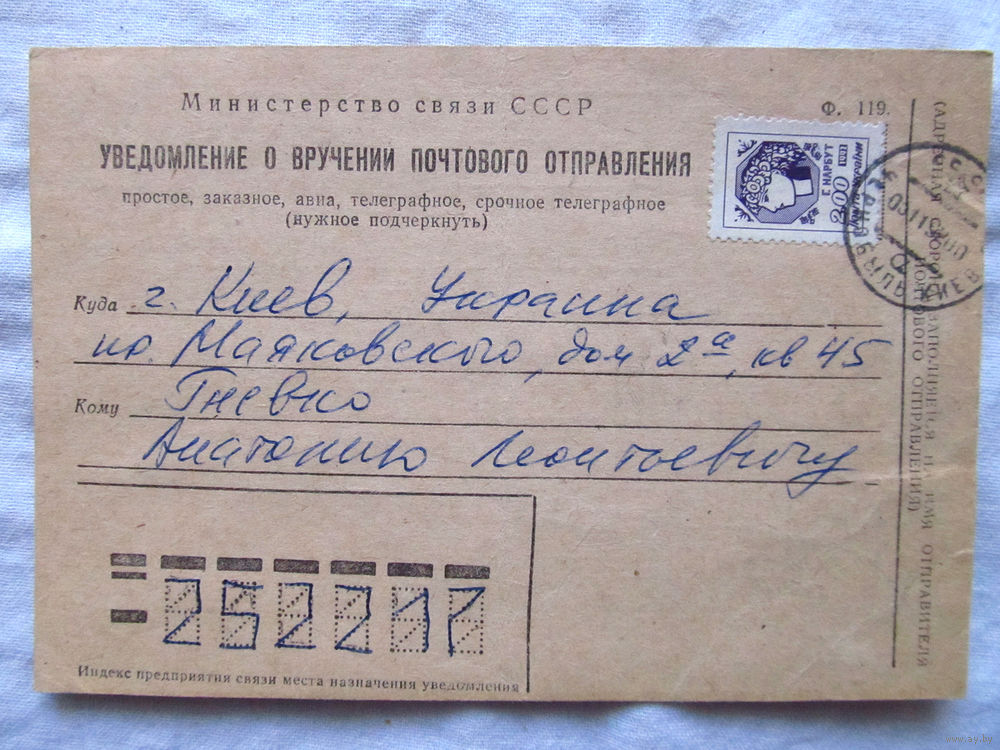 Министерство связи СССР
Ф. 119.
УВЕДОМЛЕНИЕ О ВРУЧЕНИИ ПОЧТОВОГО ОТПРАВЛЕНИЯ
простое, заказное, авиа, телеграфное, срочное телеграфное
(нужное подчеркнуть)
Г. НАРБУТ
200
КИЕВ
Куда г. Киев, Украина
пр. Маяковского, дом 2а, кв 45
Кому Гневко
Анатолию Леонтьевичу
Индекс предприятия связи места назначения уведомления
(АДРЕСНАЯ СТОРОНА ЗАПОЛНЯЕТСЯ НА ИМЯ ОТПРАВИТЕЛЯ
ПОЧТОВОГО ОТПРАВЛЕНИЯ)
www.ay.by